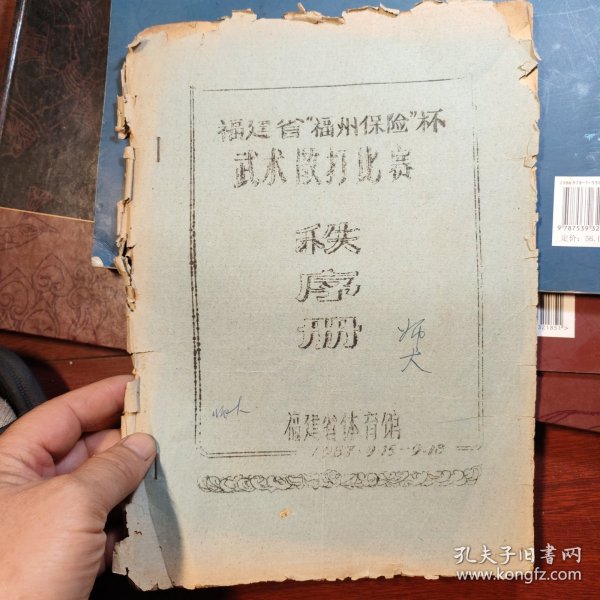 福建省“福州保险”杯
武术散打比赛
秩
序
册
师
大
师大
福建省体育馆
1987·9.15-9.18
9787539
定价:
孔夫子旧书网
www.kongfz.com